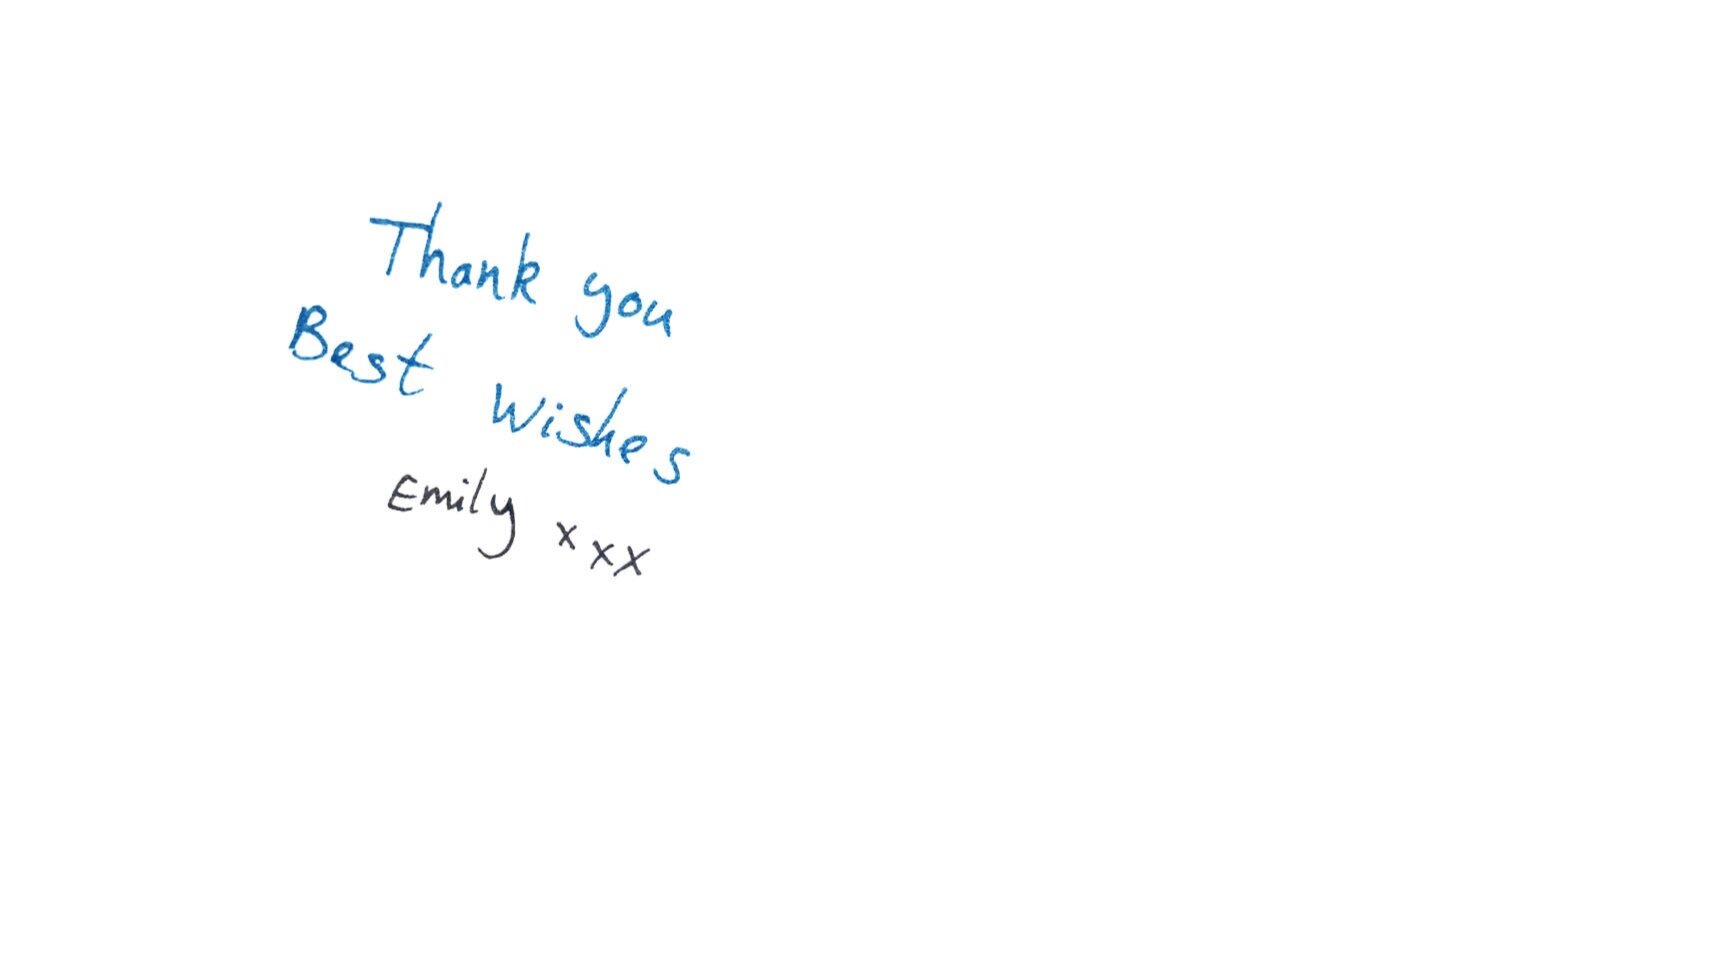 Thank you
Best Wishes
Emily xxx